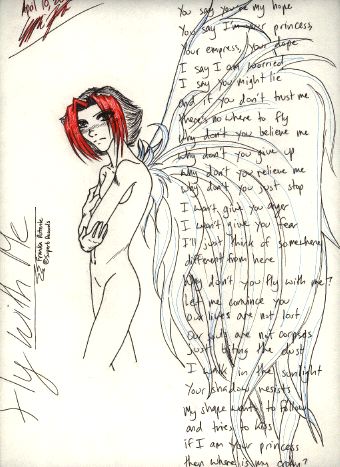 April 10,
You say you're my hope
You say I'm your princess
Your empress, your dope
I say I am worried
I say you might lie
and if you don't trust me
there's no where to fly
Why don't you believe me
Why don't you give up
Why don't you relieve me
Why don't you just stop
I won't give you anger
I won't give you fear
I'll just think of somewhere
different from here
Why don't you fly with me?
Let me convince you
Our lives are not lost
Our souls are not corpses
Just biting the dust
I walk in the sunlight
Your shadow resists
My shape want to follow
and tries to kiss
if I am your princess
then where is my crown?
Fly With Me